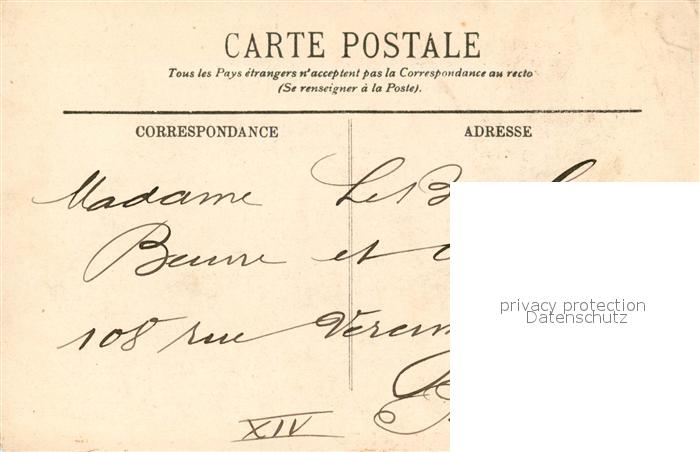 CARTE POSTALE
Tous les Pays étrangers n'acceptent pas la Correspondance au recto
(Se renseigner à la Poste).
CORRESPONDANCE ADRESSE
Madame Le
Beurre et
108 rue
XIV
privacy protection
Datenschutz